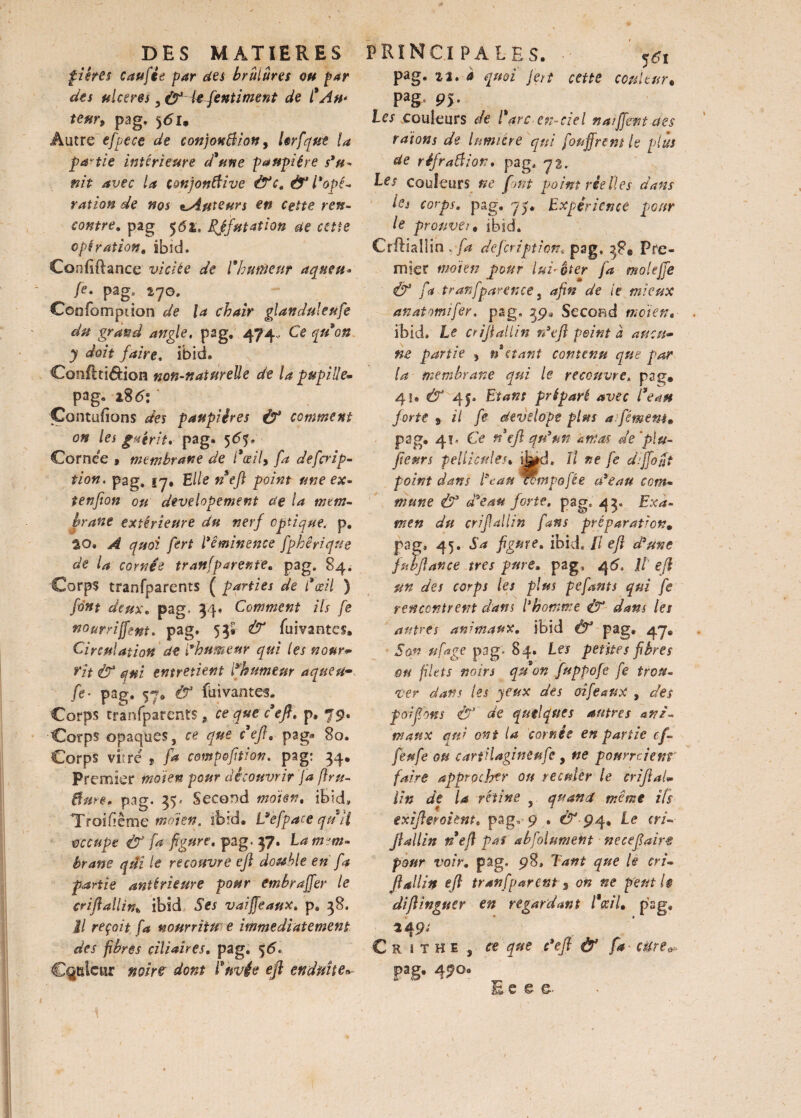 DES MATIERES PRINCIPALES. 561
piéres causée par des brûlûres ou par
des ulceres, & le sentiment de l'Au-
teur, pag. 561.
Autre espece de conjonction, lorsque la
partie intérieure d'une paupiére s'u-
nit avec la conjonctive &c. & l'opé-
ration de nos Auteurs en cette ren-
contre. pag 562. Réfutation de cette
opération. ibid.
Consistance viciée de l'humeur aqueu-
se. pag. 270.
Consomption de la chair glanduleuse
du grand angle. pag. 474. Ce qu'on
y doit faire. ibid.
Constriction non-naturelle de la pupille.
pag. 286.
Contusions des paupiéres & comment
on les guérit. pag. 565.
Cornée, membrane de l'œil, sa descrip-
tion. pag. 17. Elle n'est point une ex-
tension ou développement de la mem-
brane extérieure du nerf optique. p.
20. A quoi sert l'éminence sphérique
de la cornée transparente. pag. 84.
Corps transparents ( parties de l'œil )
sont deux. pag. 34. Comment ils se
nourrissent. pag. 53. & suivantes.
Circulation de l'humeur qui les nour-
rit & qui entretient l'humeur aqueu-
se. pag. 57. & suivantes.
Corps transparents, ce que c'est. p. 79.
Corps opaques, ce que c'est. pag. 80.
Corps vitré, sa composition. pag: 34.
Premier moïen pour découvrir sa stru-
cture. pag. 35. Second moïen. ibid.
Troisiême moïen. ibid. L'espace qu'il
occupe & sa figure. pag. 37. La mem-
brane qui le recouvre est double en sa
partie antérieure pour embrasser le
cristallin. ibid Ses vaisseaux. p. 38.
Il reçoit sa nourriture immediatement
des fibres ciliaires. pag. 56.
Couleur noire dont l'uvée est enduite.
pag. 22. à quoi sert cette couleur.
pag. 95.
Les couleurs de l'arc en-ciel naissent des
raïons de lumiére qui souffrent le plus
de réfraction. pag. 72.
Les couleurs ne sont point réelles dans
les corps. pag. 75. Expérience pour
le prouver. ibid.
Cristallin, sa description. pag. 38. Pre-
mier moïen pour lui ôter sa molesse
& sa transparence, afin de le mieux
anatomiser. pag. 39. Second moïen.
ibid. Le cristallin n'est point à aucu-
ne partie, n'étant contenu que par
la membrane qui le recouvre. pag.
41. & 45. Etant préparé avec l'eau
forte, il se dévelope plus aisément.
pag. 41. Ce n'est qu'un amas de plu-
sieurs pellicules. ibid. Il ne se dissout
point dans l'eau composée d'eau com-
mune & d'eau forte. pag. 43. Exa-
men du cristallin sans préparation.
pag. 45. Sa figure. ibid. Il est d'une
substance tres pure. pag. 46. Il est
un des corps les plus pesants qui se
rencontrent dans l'homme & dans les
autres animaux. ibid & pag. 47.
Son usage pag. 84. Les petites fibres
ou filets noirs qu'on suppose se trou-
ver dans les yeux des oiseaux, des
poissons & de quelques autres ani-
maux qui ont la cornée en partie os-
seuse ou cartilagineuse, ne pourroient
faire approcher ou reculer le cristal-
lin de la rétine, quand même ils
existeroient. pag. 9 . & 94. Le cri-
stallin n'est pas absolument necessaire
pour voir. pag. 98. Tant que le cri-
stallin est transparent, on ne peut le
distinguer en regardant l'œil. pag.
249.
CRITHE, ce que c'est & sa cure.
pag. 490.
Eeee